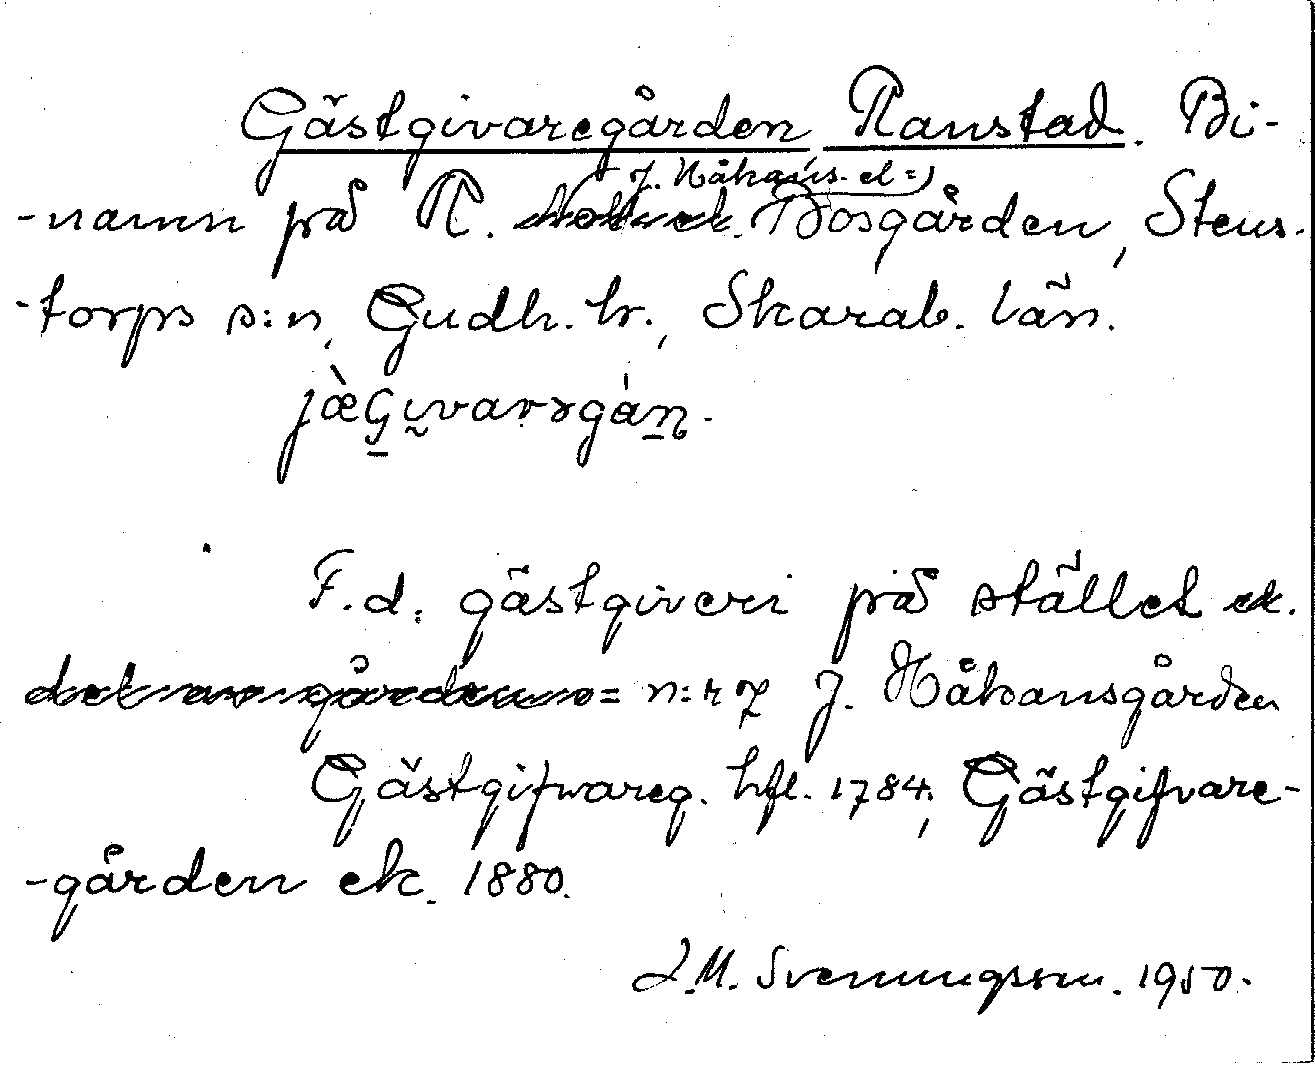 Gästgivaregården Ranstad. Bi-
J. Håkans- el=
-namn på R. Bosgården, Stens-
-torps s:n, Gudh. hr., Skarab. län.
F.d. gästgiveri på stället ek.
= n:r 7 J. Håkansgården
Gästgifwareg. hfl. 1784, Gästgifvare-
-gården ek. 1880.
J.M. Svenungsson. 1950.